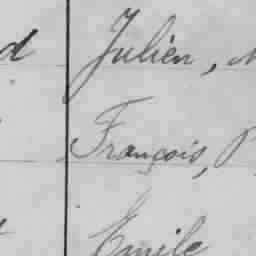 d Julien,
François, P
Emile